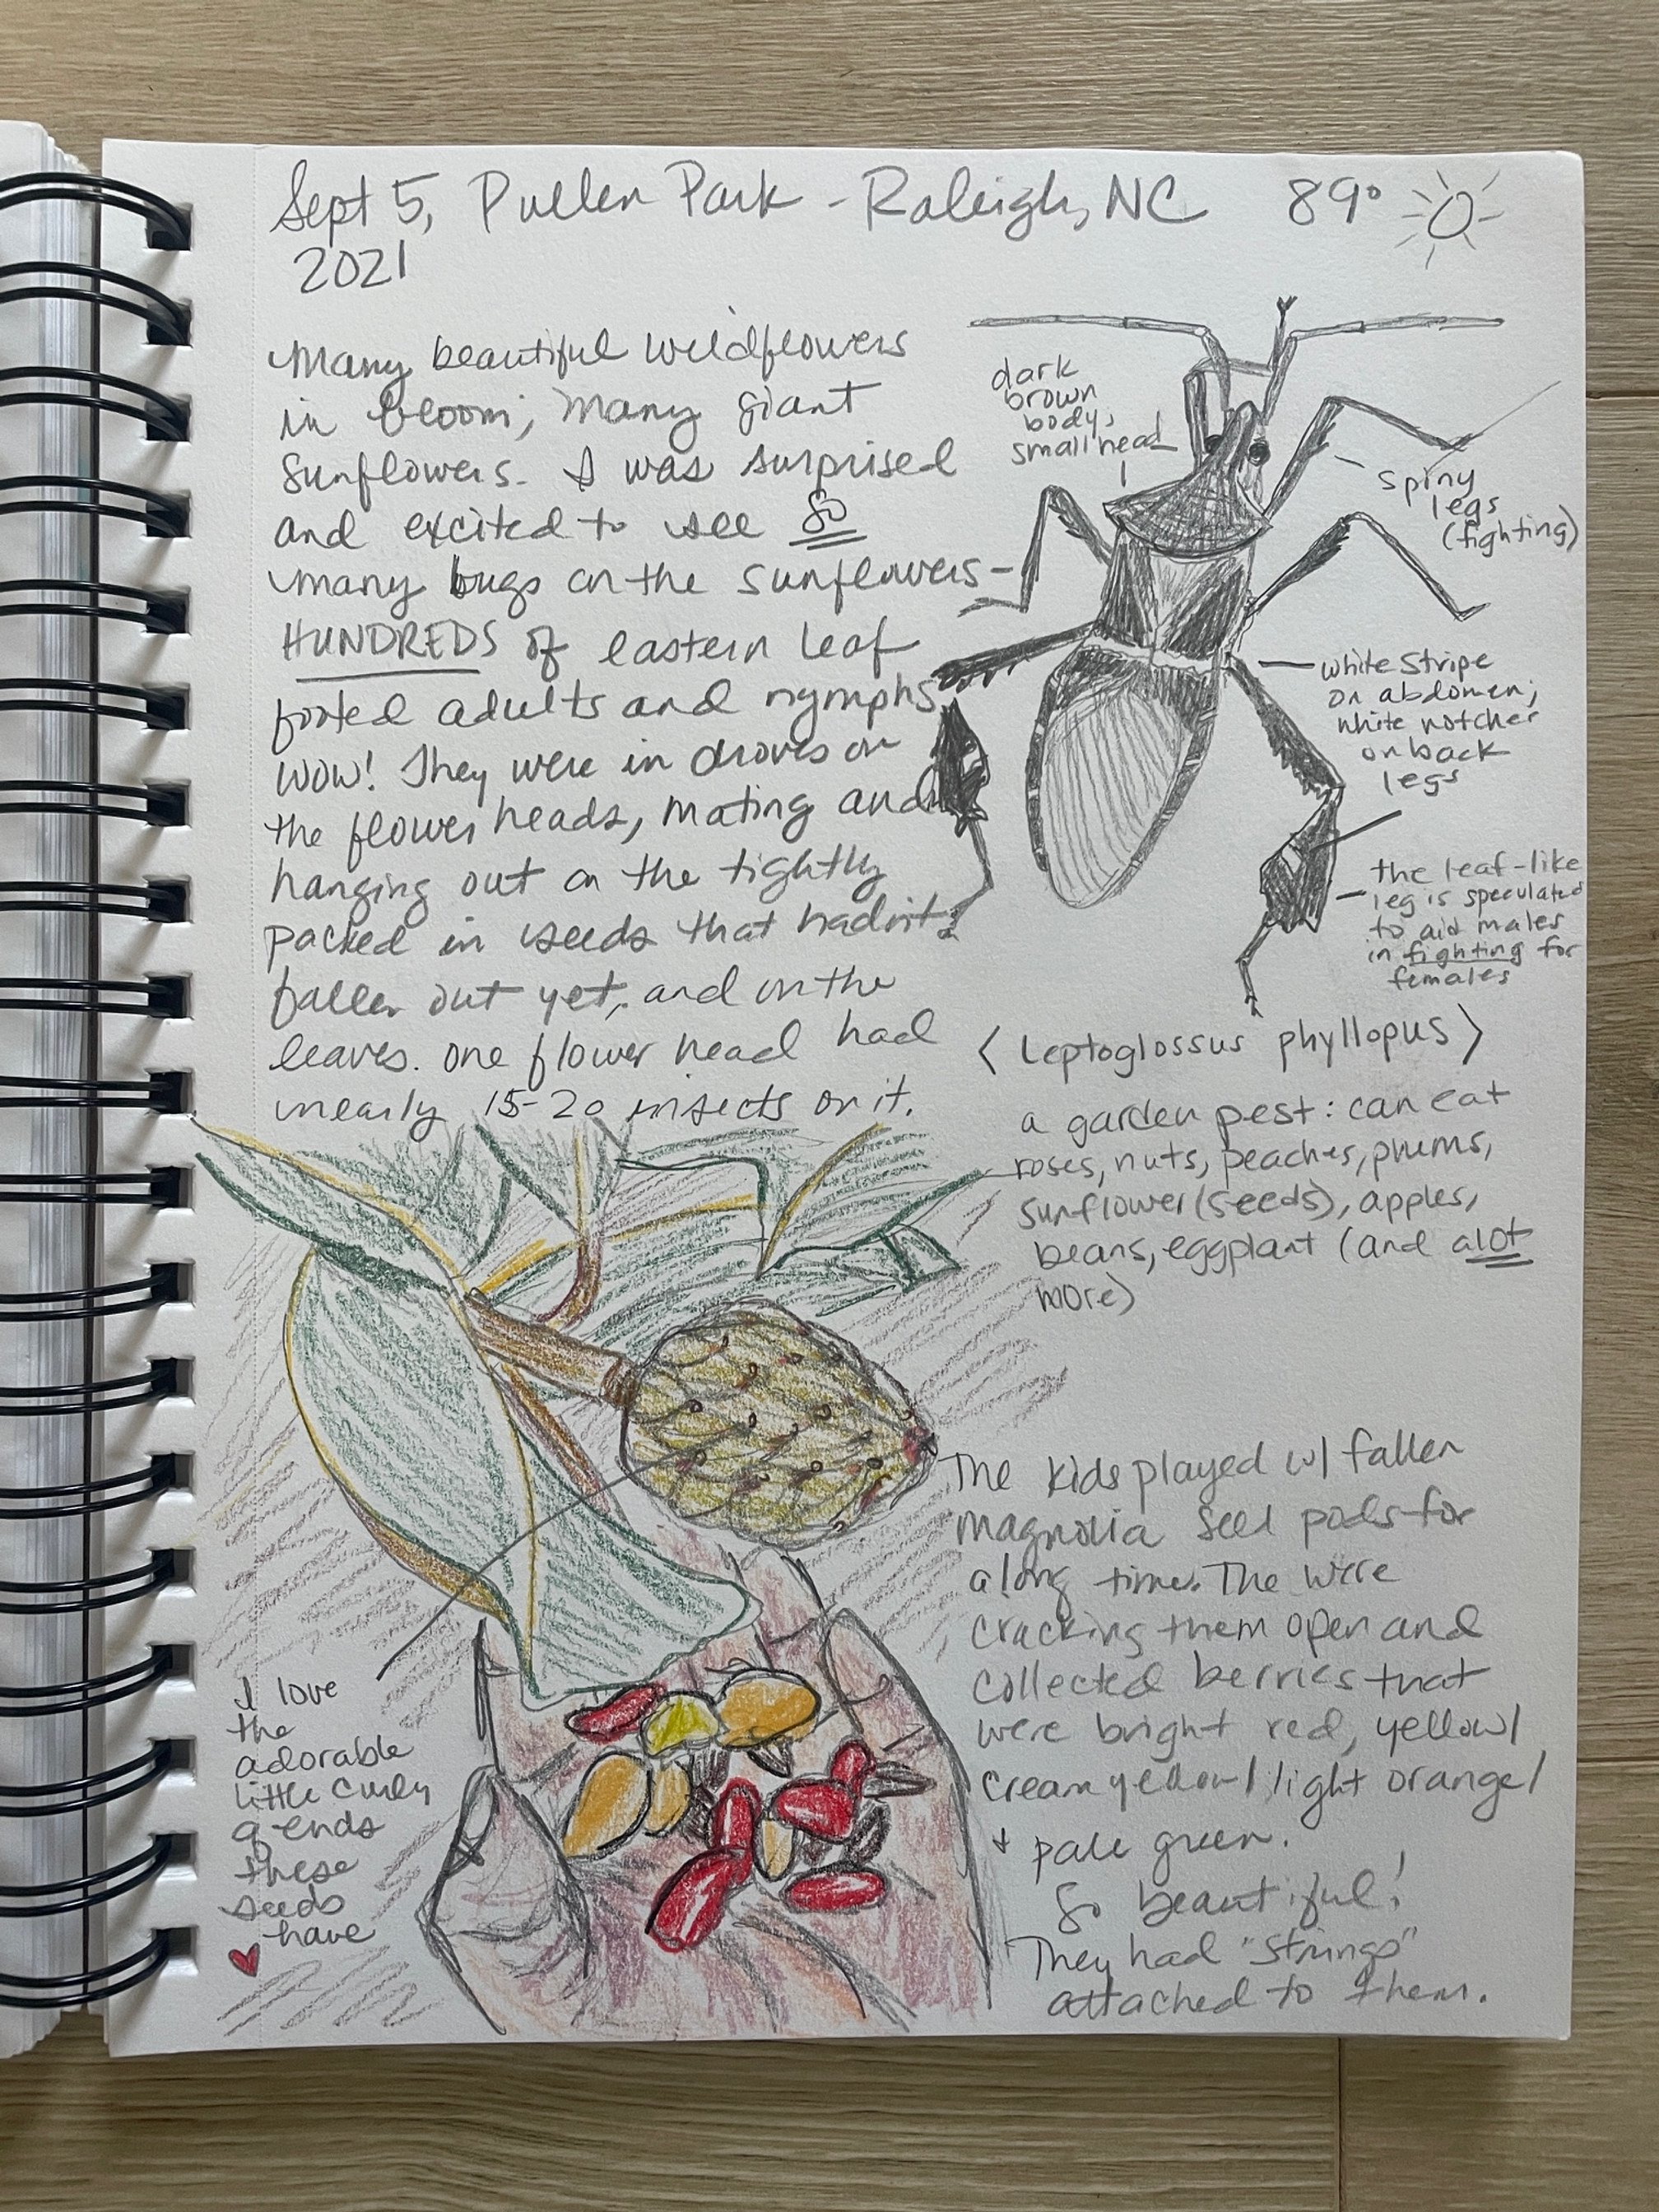 Sept 5, Pullen Park - Raleigh, NC 89°
2021
Many beautiful wildflowers
in bloom; many giant
sunflowers. I was surprised
and excited to see so
many bugs on the sunflowers-
HUNDREDS of eastern leaf
footed adults and nymphs.
Wow! They were in droves on
the flower heads, mating and
hanging out on the tightly
packed in seeds that hadn't
fallen out yet, and on the
leaves. One flower head had
nearly 15-20 insects on it.
dark
brown
body,
small head
spiny
legs
(fighting)
white stripe
on abdomen;
white notches
on back
legs
the leaf-like
leg is speculated
to aid males
in fighting for
females
< Leptoglossus phyllopus >
a garden pest: can eat
roses, nuts, peaches, plums,
sunflower (seeds), apples,
beans, eggplant (and alot
more)
The kids played w/ fallen
magnolia seed pods for
a long time. The were
cracking them open and
collected berries that
were bright red, yellow/
cream yellow/light orange/
+ pale green.
So beautiful!
They had "strings"
attached to them.
I love
the
adorable
little curly
q ends
these
seeds
have